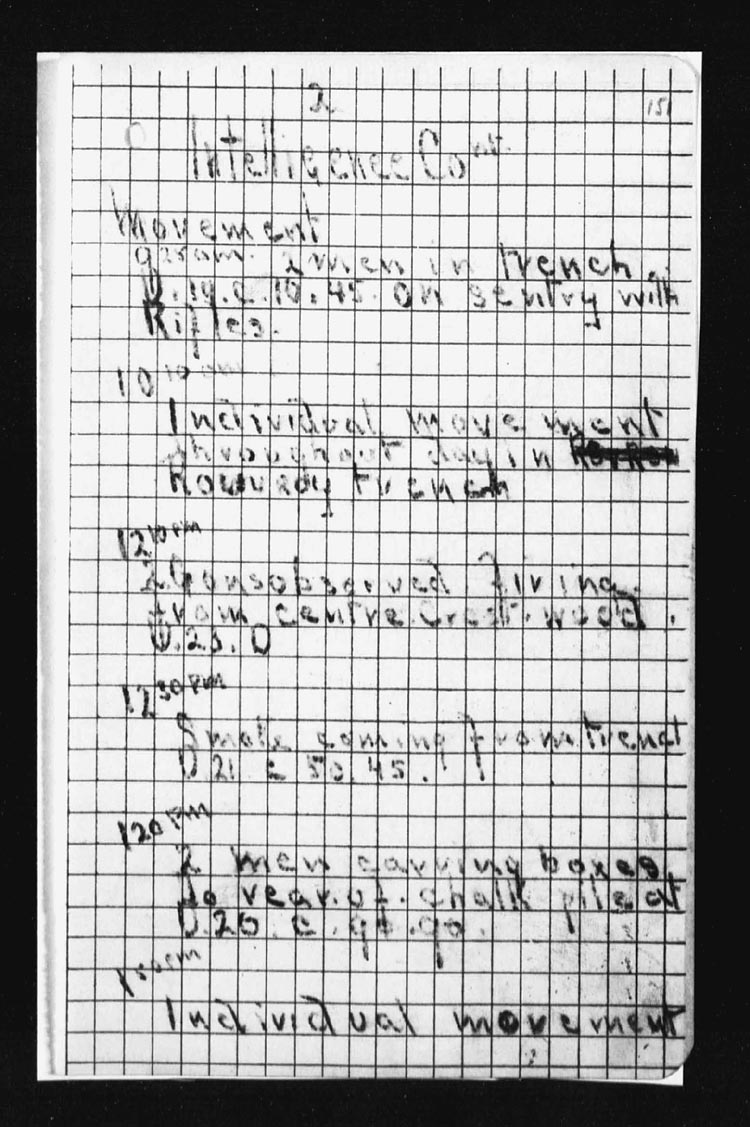 2
151
Intelligence Cont.
Movement
2 men in trench.
U.19.c.10.45. on sentry with
Rifles.
10 10 am
Individual movement
throughout day in
trench
12 10 pm
2 Guns observed firing
from centre. Crest. wood.
U.23. D
12 30 PM
Smoke coming from trench
U 21 c 50.45.
1 20 PM
2 men carrying boxes
to rear. of. chalk pile at
U.26. c. 90.90.
Individual movement